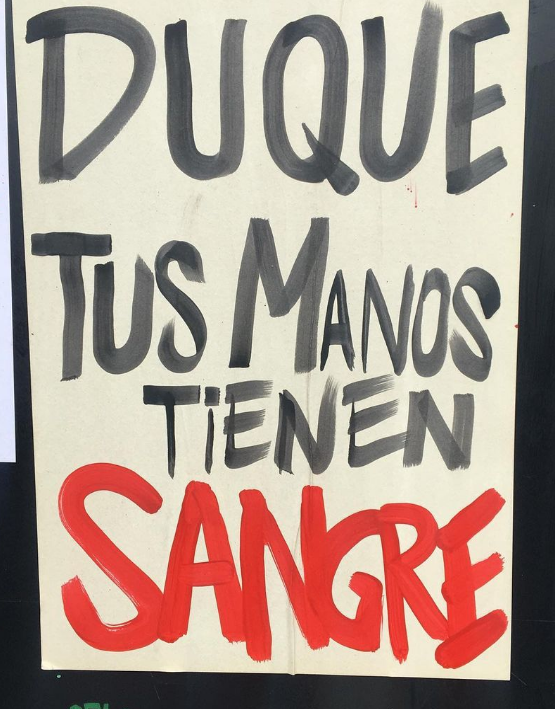 DUQUE
TUS MANOS
TiENEN
SANGRE